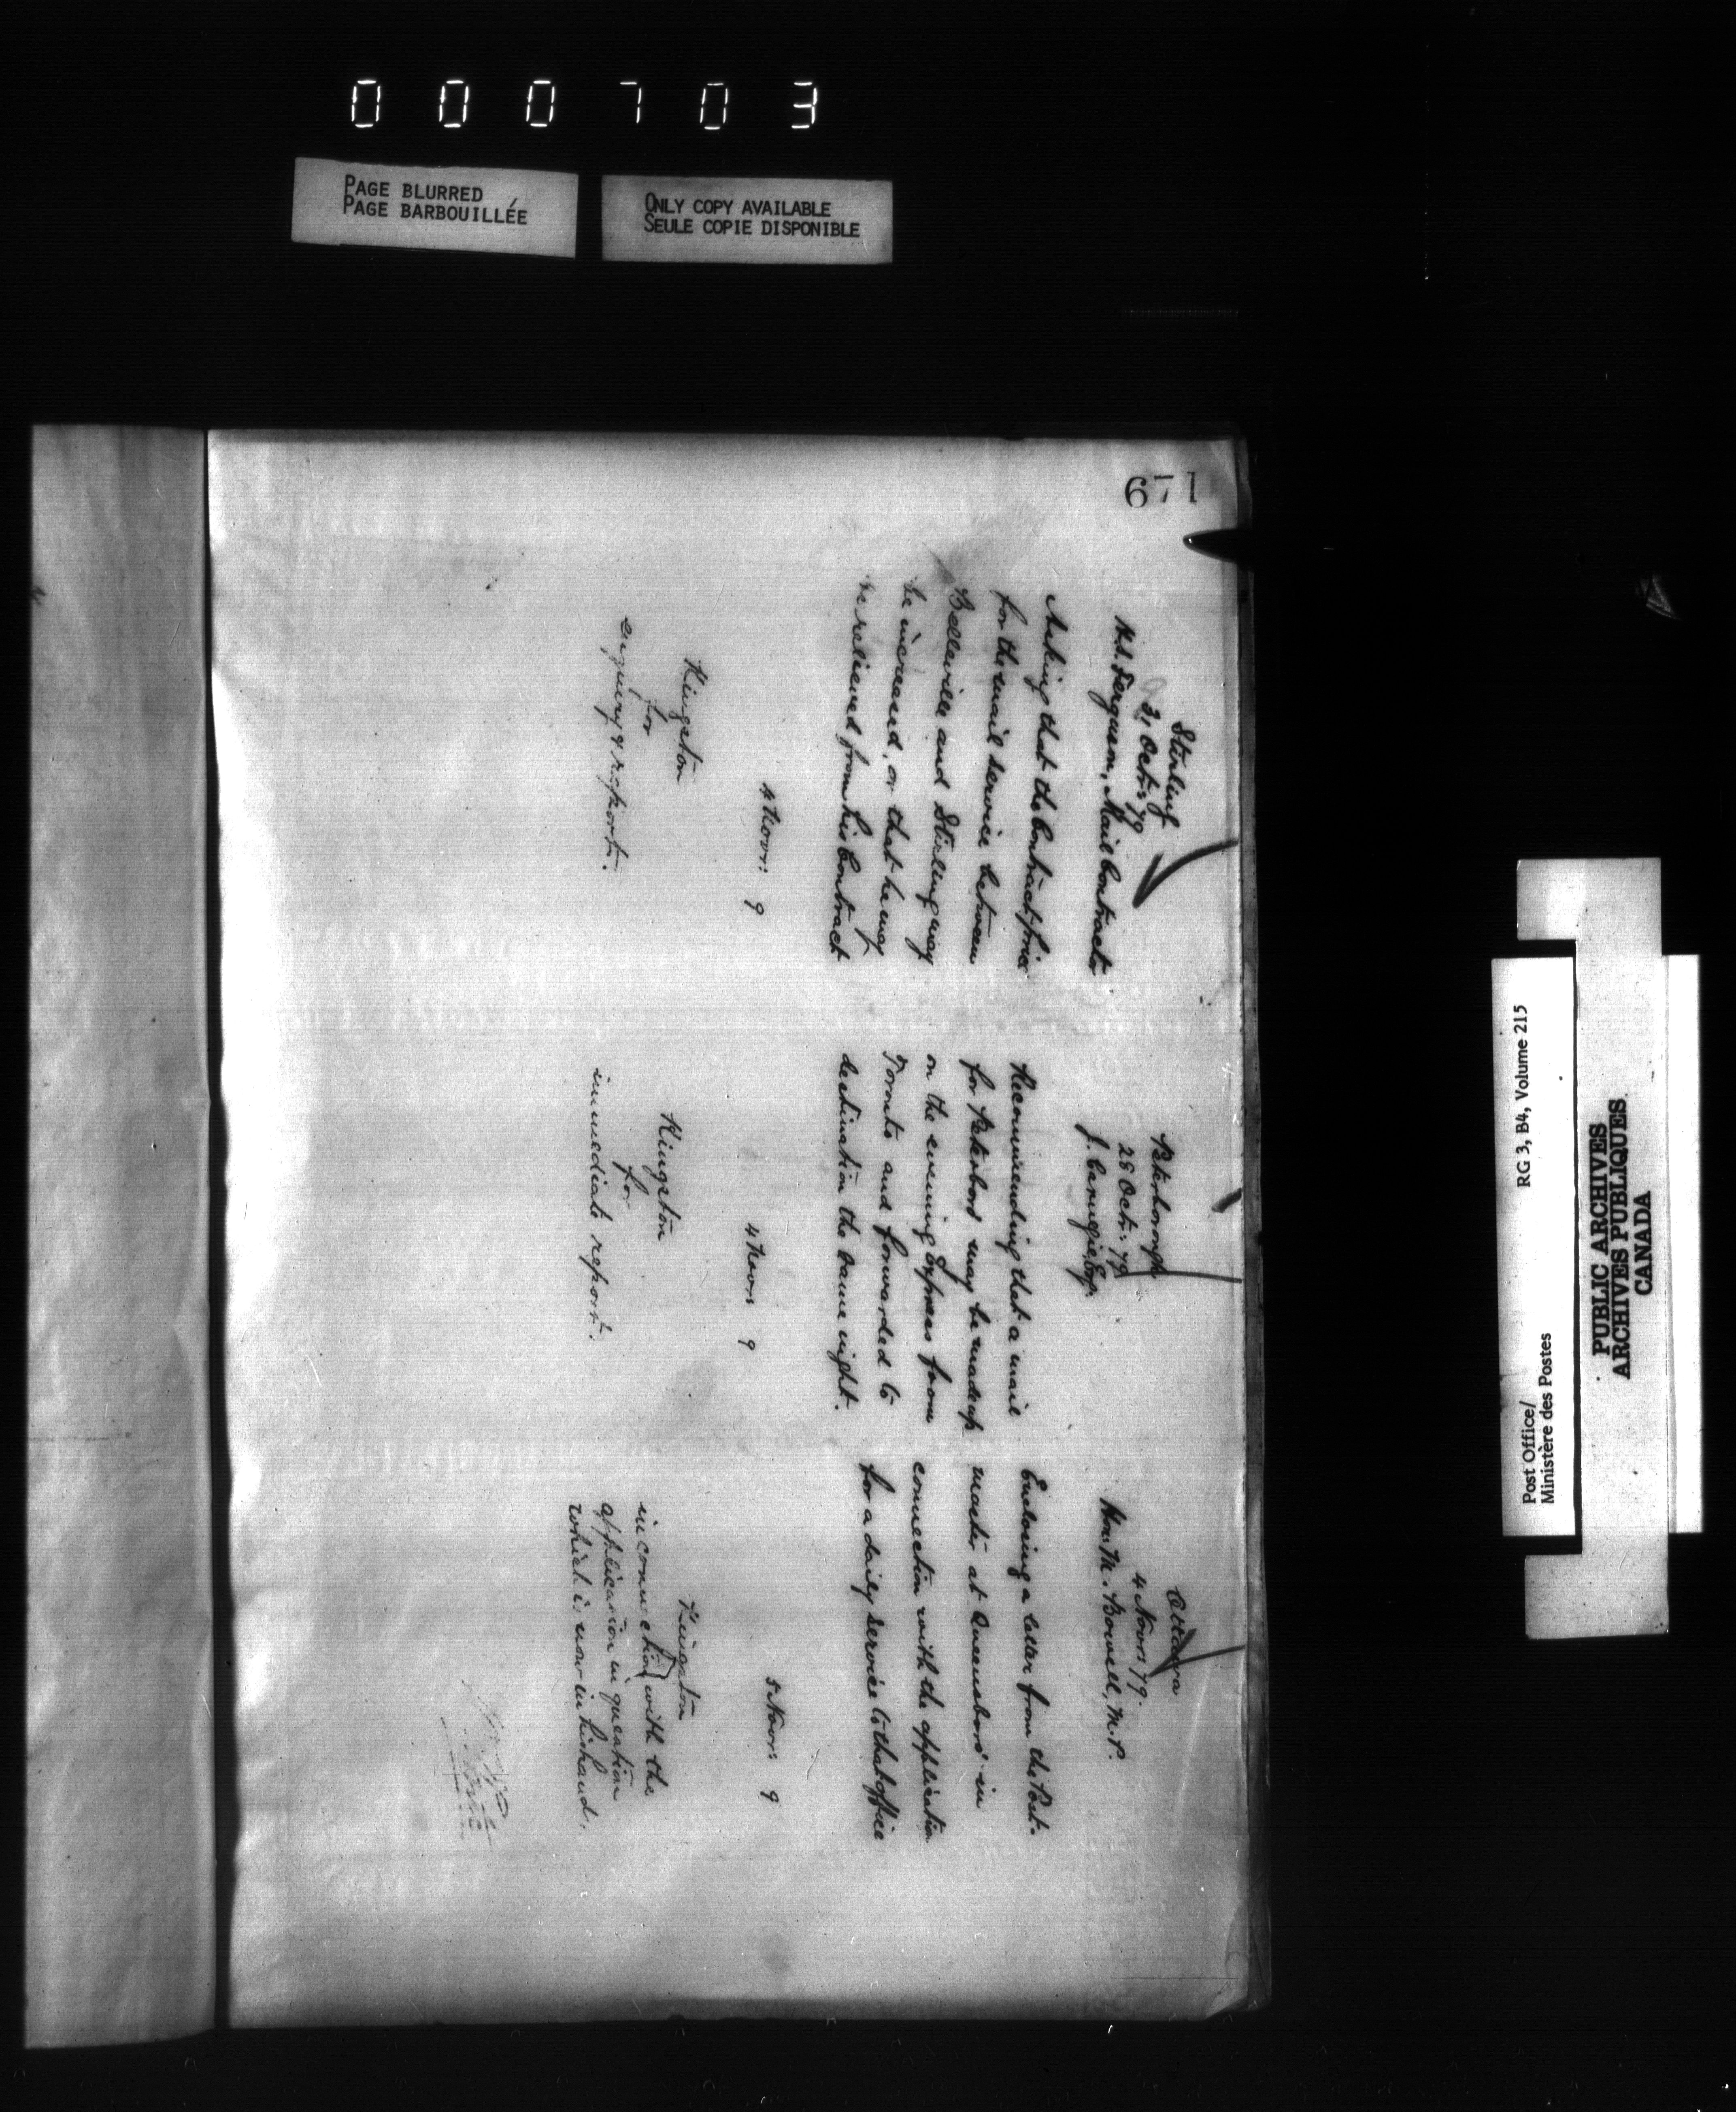 000703
PAGE BLURRED
PAGE BARBOUILLÉE
ONLY COPY AVAILABLE
SEULE COPIE DISPONIBLE
671
Stirling
31 Octr: 79
Ferguson, Mail Contractor
Asking that the Contract price
for the mail service between
Belleville and Stirling may
be increased, or that he may
be relieved from his Contract
4 Novr: 9
Kingston
for
enquiry & report.
Peterborough
28 Octr: 79
J. Carnegie, Esq.
Recommending that a mail
for Peterboro' may be made up
on the evening Express from
Toronto and forwarded to
destination the same night.
4 Novr: 9
Kingston
for
immediate report.
Ottawa
4 Novr: 79
Hon: M. Bowell, M.P.
Enclosing a letter from the Post-
master at Queensboro' in
connection with the application
for a daily service to that office
5 Novr: 9
Kingston
in connection with the
application in question
which is now in his hand.
RG 3, B4, Volume 215
Post Office/
Ministère des Postes
PUBLIC ARCHIVES
ARCHIVES PUBLIQUES
CANADA